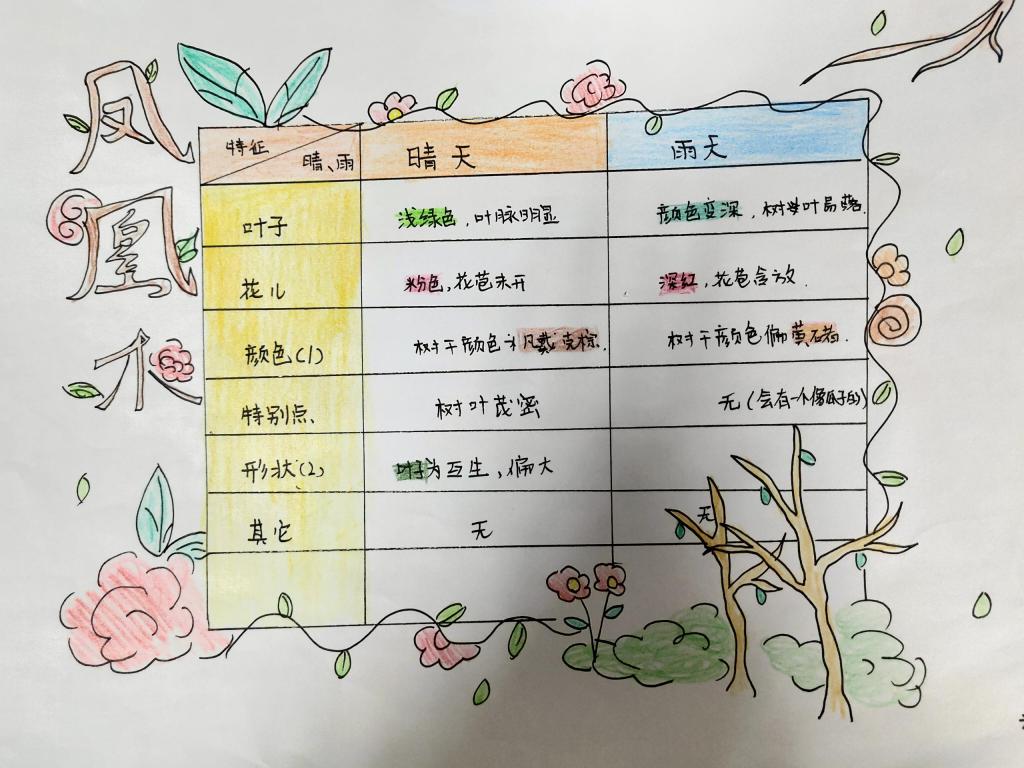 凤凰木
特征 晴、雨 晴天 雨天
叶子 浅绿色，叶脉明显 颜色变深，树叶易落.
花儿 粉色，花苞未开 深红，花苞含放.
颜色(1) 树干颜色为 树干颜色偏黄
特别点 树叶茂密 无(会有一个像瓜子的)
形状(2) 叶子为互生，偏大
其它 无 无